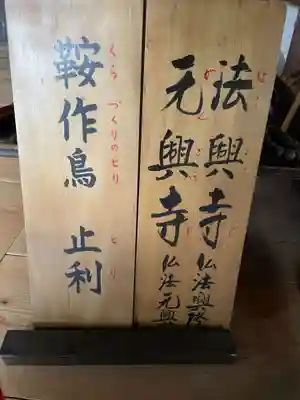 法興寺 仏法興隆
ほう こう じ
元興寺 仏法元興
がん ごう じ
鞍作鳥 止利
くら づくりのとり とり